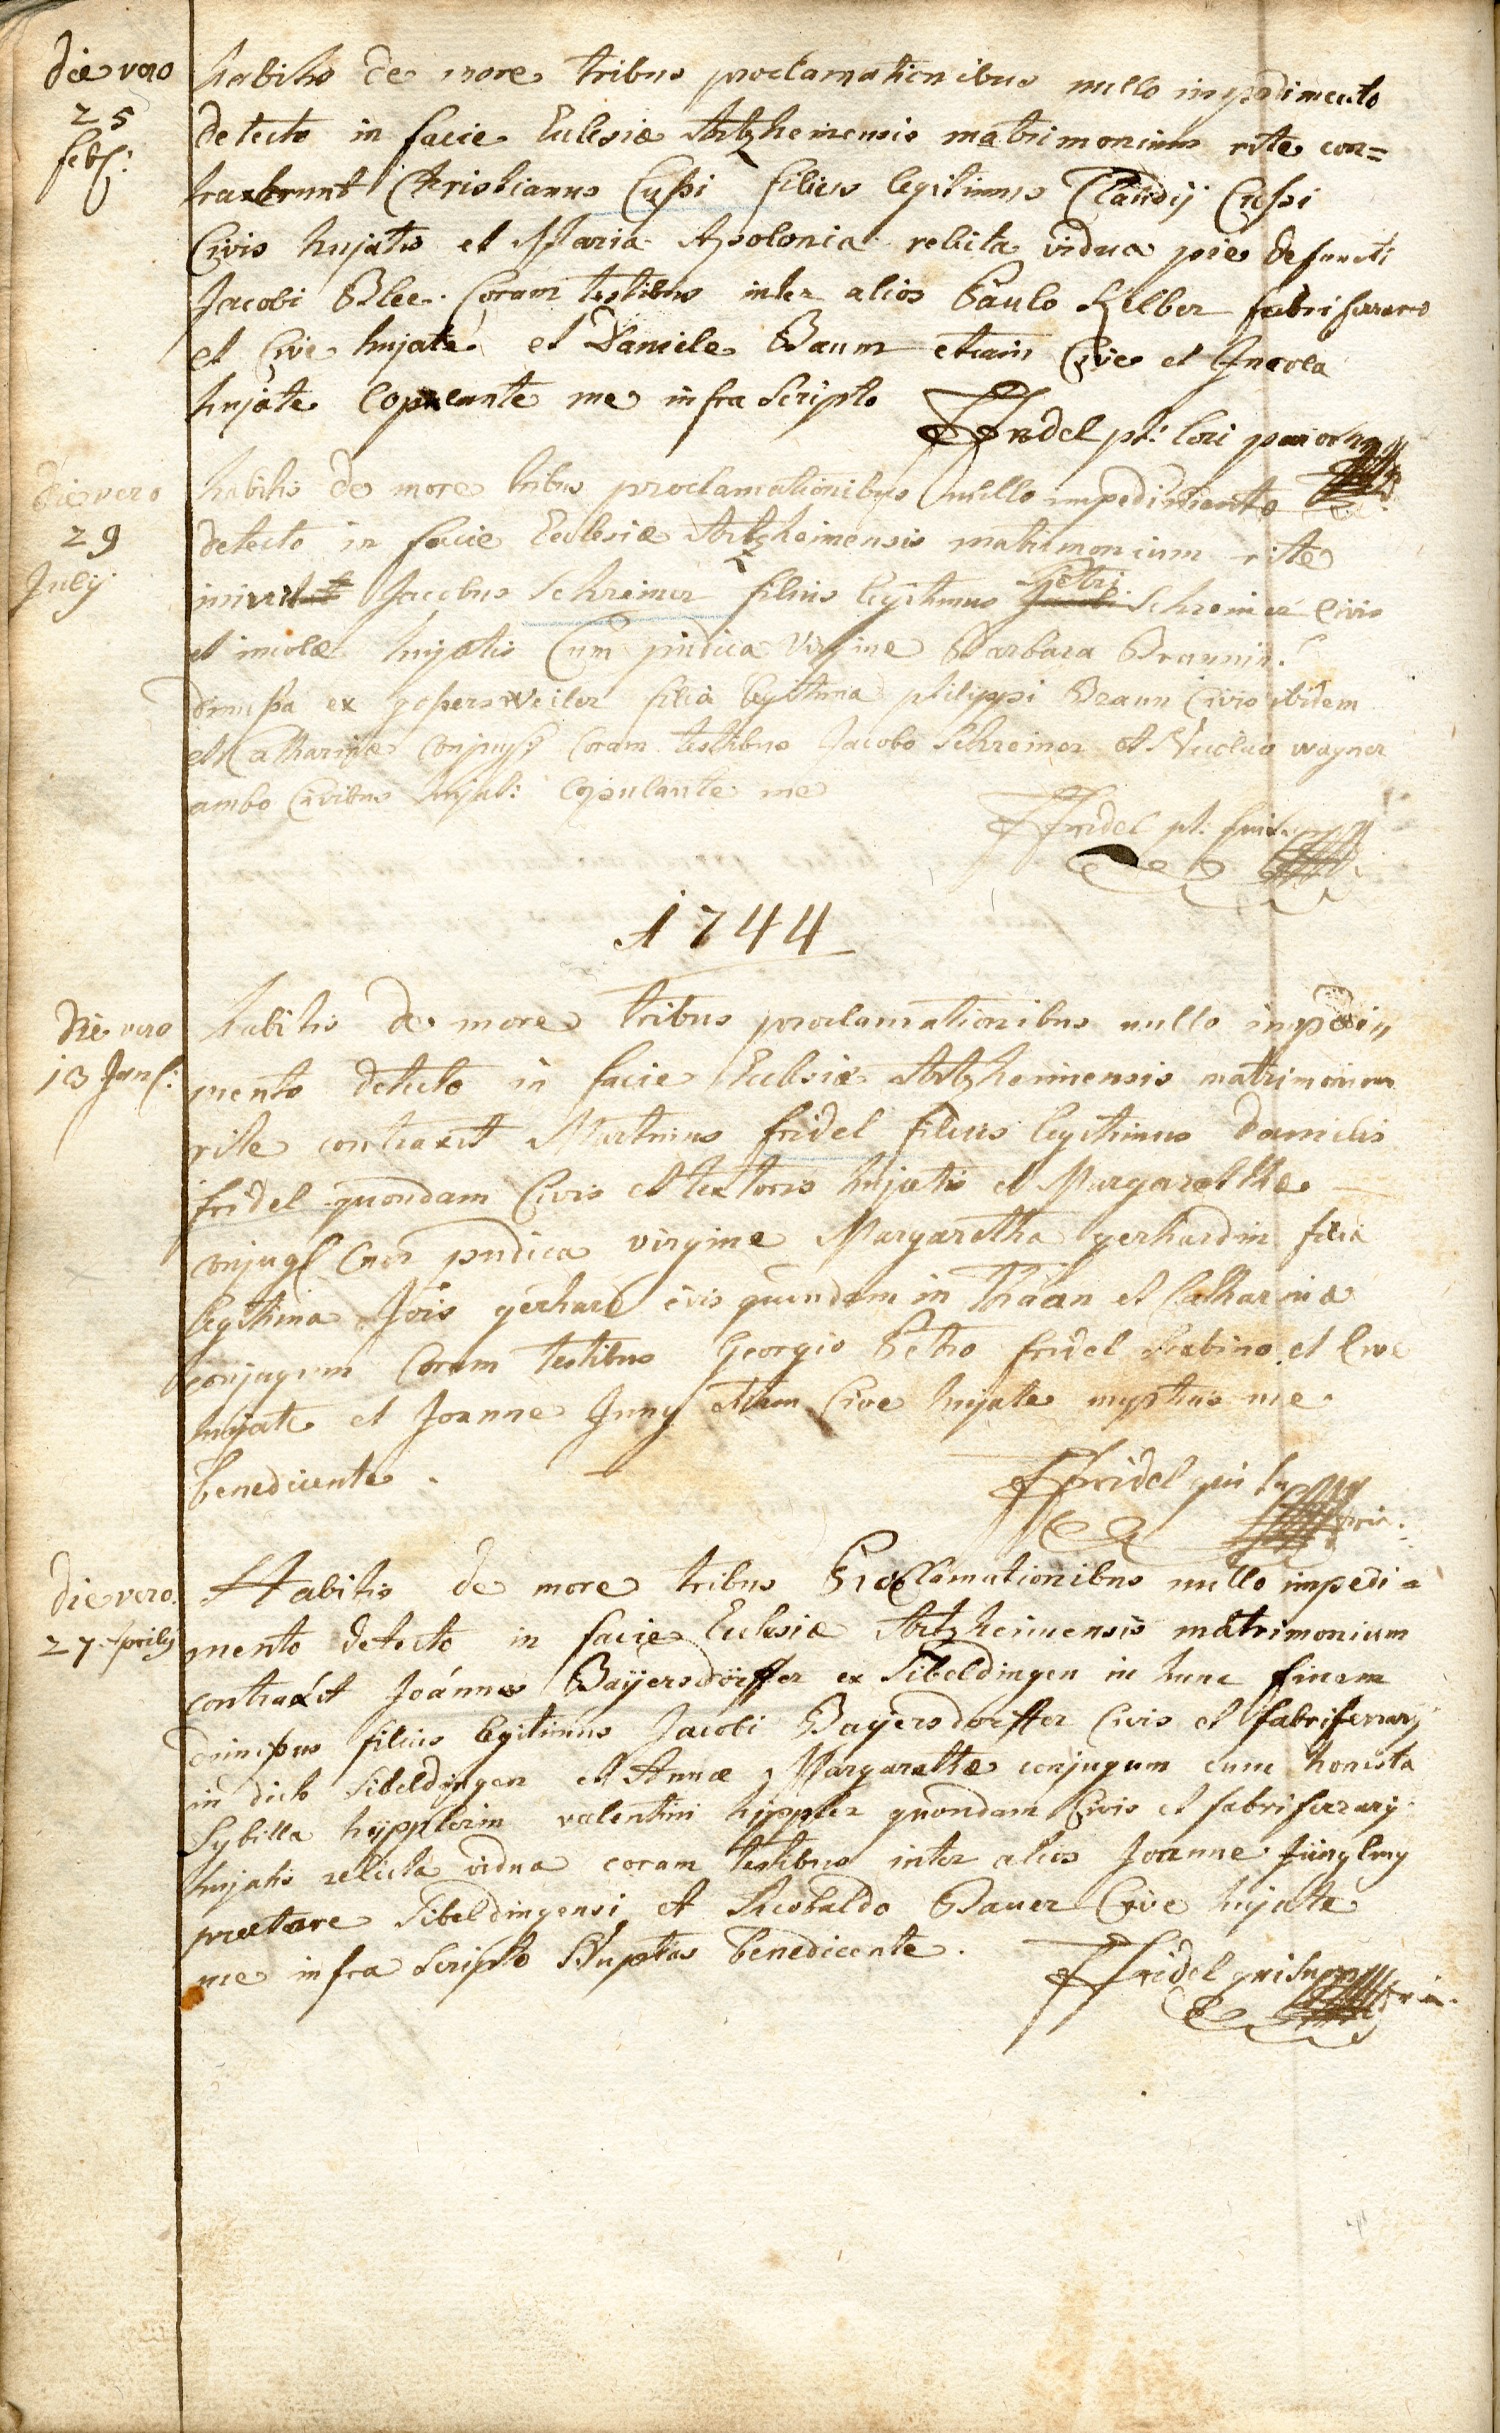 die vero
25
feb:
habitis de more tribus proclamationibus nullo impedimento
detecto in facie Eclesiæ Artzheimensis matrimonium rite con=
traxerunt Christianus Cußi filius legitimus Claudij Cußi
Civis hujatis et Maria Apolonia relicta vidua pie defuncti
Jacobi Blee. Coram testibus inter alios Paulo Kelber fabri ferrario
et Cive hujate et Daniele Baum etiam Cive et Incola
hujate Copulante me infra Scripto
Fridel pt: loci parochus
die vero
29
July
habitis de more tribus proclamationibus nullo impedimento
detecto in facie Ecclesiæ Artzheimensis matrimonium rite
inivit Jacobus Schreiner filius legitimus Petri Schreiner Civis
et incolæ hujatis Cum pudica Virgine Barbara Braunin
dimissa ex gossersweiler filia legitima philippi Braun Civis ibidem
et Catharinæ Conjug: Coram testibus Jacobo Schreiner et Nicolao wagner
ambo Civibus hujat: Copulante me
Fridel pt:
1744
Die vero
13 Jan:
habitis de more tribus proclamationibus nullo impedi„
mento detecto in facie Eclesiæ Artzheimensis matrimonium
rite contraxit Martinus fridel filius legitimus Danielis
fridel quondam Civis et textoris hujatis et Margarethæ
conjug: Cum pudica virgine Margaretha gerhardin filia
legitima Jois gerhard civis quondam in Thaan et Catharinæ
conjugum Coram testibus Georgio Petro fridel Scabino et Cive
hujate et Joanne Jung etiam Cive hujate nuptias me
benedicente.
Fridel qui
Die vero
27 Aprily
Habitis de more tribus Proclamationibus nullo impedi=
mento detecto in facie Eclesiæ Artzheimensis matrimonium
contraxit Joánnes Baÿersdörffer ex Sibeldingen in hunc finem
dimißus filius legitimus Jacobi Bayersdorffer Civis et fabri ferrarij
in dicto Sibeldingen et Annæ Margarethæ conjugum cum honesta
Sybilla hypplerin valentini hyppler quondam Civis et fabri ferrarij
hujatis relicta vidua coram testibus inter alios Joanne Jüngling
prætore Sibeldingensi et Theobaldo Bauer Cive hujate
me infra Scripto Nuptias benedicente.
Fridel qui supra